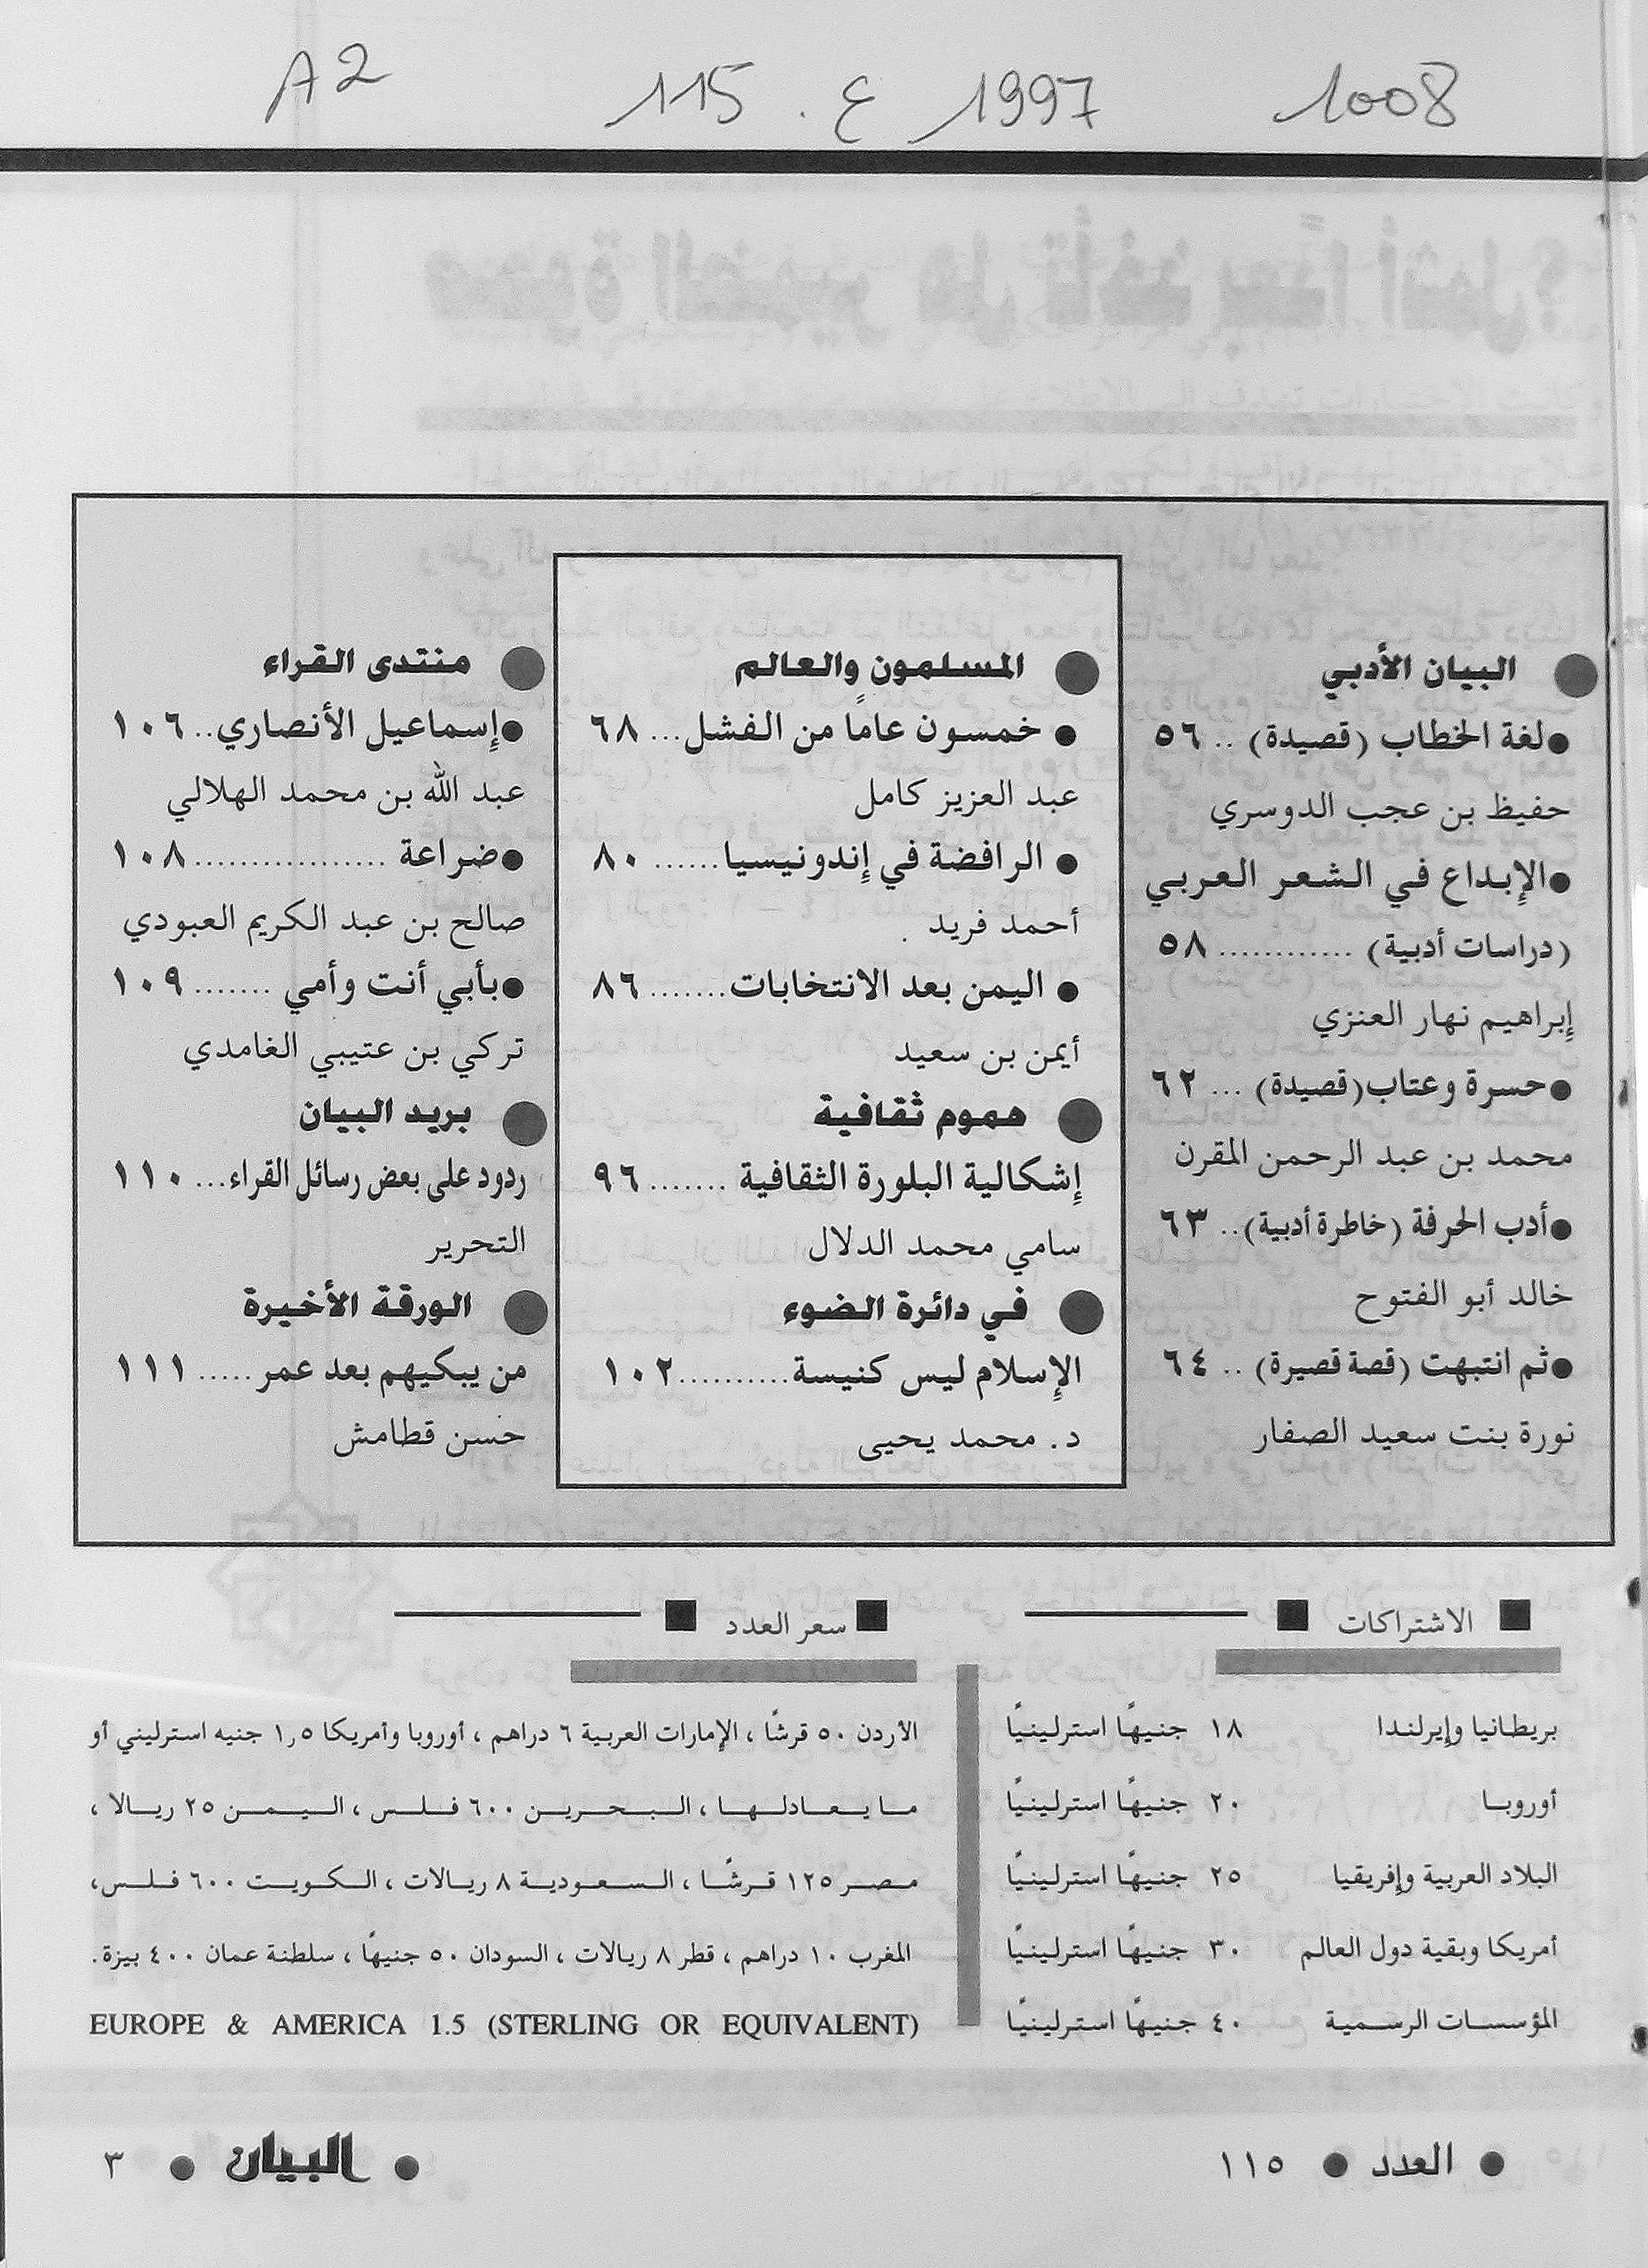 A2 115 . ع 1997 1008
البيان الأدبي
● لغة الخطاب (قصيدة) .. ٥٦
حفيظ بن عجب الدوسري
● الإبداع في الشعر العربي
(دراسات أدبية) ............ ٥٨
إبراهيم نهار العنزي
● حسرة وعتاب (قصيدة) ... ٦٢
محمد بن عبد الرحمن المقرن
● أدب الحرفة (خاطرة أدبية) .. ٦٣
خالد أبو الفتوح
● ثم انتبهت (قصة قصيرة) .. ٦٤
نورة بنت سعيد الصفار
المسلمون والعالم
● خمسون عامًا من الفشل ... ٦٨
عبد العزيز كامل
● الرافضة في إندونيسيا ...... ٨٠
أحمد فريد
● اليمن بعد الانتخابات ....... ٨٦
أيمن بن سعيد
هموم ثقافية
إشكالية البلورة الثقافية ....... ٩٦
سامي محمد الدلال
في دائرة الضوء
الإسلام ليس كنيسة .......... ١٠٢
د. محمد يحيى
منتدى القراء
● إسماعيل الأنصاري .. ١٠٦
عبد الله بن محمد الهلالي
● ضراعة ................. ١٠٨
صالح بن عبد الكريم العبودي
● بأبي أنت وأمي ....... ١٠٩
تركي بن عتيبي الغامدي
بريد البيان
ردود على بعض رسائل القراء ... ١١٠
التحرير
الورقة الأخيرة
من يبكيهم بعد عمر ..... ١١١
حسن قطامش
الاشتراكات
بريطانيا وإيرلندا ١٨ جنيهًا استرلينيًا
أوروبا ٢٠ جنيهًا استرلينيًا
البلاد العربية وإفريقيا ٢٥ جنيهًا استرلينيًا
أمريكا وبقية دول العالم ٣٠ جنيهًا استرلينيًا
المؤسسات الرسمية ٤٠ جنيهًا استرلينيًا
سعر العدد
الأردن ٥٠ قرشًا ، الإمارات العربية ٦ دراهم ، أوروبا وأمريكا ١,٥ جنيه استرليني أو
ما يعادلها ، البحرين ٦٠٠ فلس ، اليمن ٢٥ ريالا ،
مصر ١٢٥ قرشًا ، السعودية ٨ ريالات ، الكويت ٦٠٠ فلس،
المغرب ١٠ دراهم ، قطر ٨ ريالات ، السودان ٥٠ جنيهًا ، سلطنة عمان ٤٠٠ بيزة.
EUROPE & AMERICA 1.5 (STERLING OR EQUIVALENT)
● العدد ● ١١٥
● البيان ● ٣